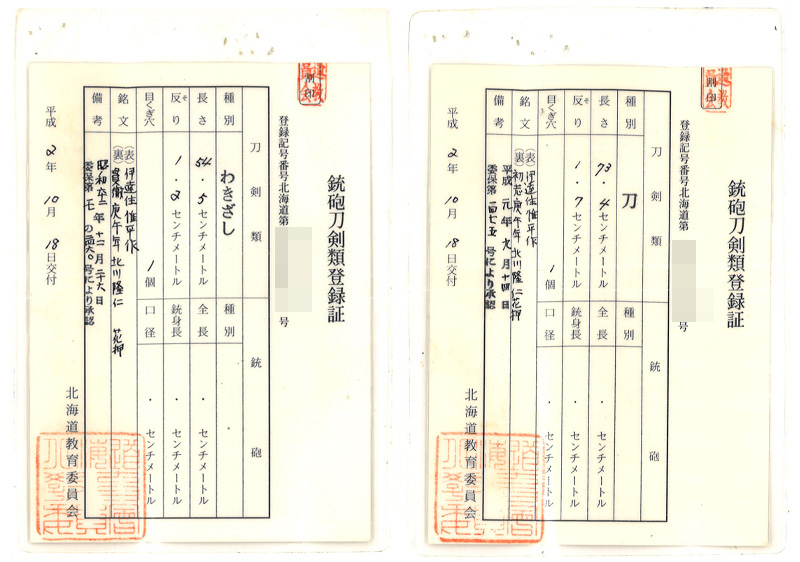 銃砲刀剣類登録証
登録記号番号北海道第 号
割印
刀剣類
種別 わきざし
長さ 54.5センチメートル
反り 1.2センチメートル
そ
目くぎ穴 1個
銘文
(表)伊達住惟平作
(裏) 庚午年 北川隆仁 花押
備考
昭和六二年十二月二六日
号により承認
銃砲
種別
全長 . センチメートル
銃身長 . センチメートル
口径 . センチメートル
平成2年10月18日交付
北海道教育委員会
銃砲刀剣類登録証
登録記号番号北海道第 号
割印
刀剣類
種別 刀
長さ 73.4センチメートル
反り 1.7センチメートル
そ
目くぎ穴 1個
銘文
(表)伊達住惟平作
(裏)初志庚午年 北川隆仁花押
備考
平成元年九月十四日
委保第 号により承認
銃砲
種別
全長 . センチメートル
銃身長 . センチメートル
口径 . センチメートル
平成2年10月18日交付
北海道教育委員会